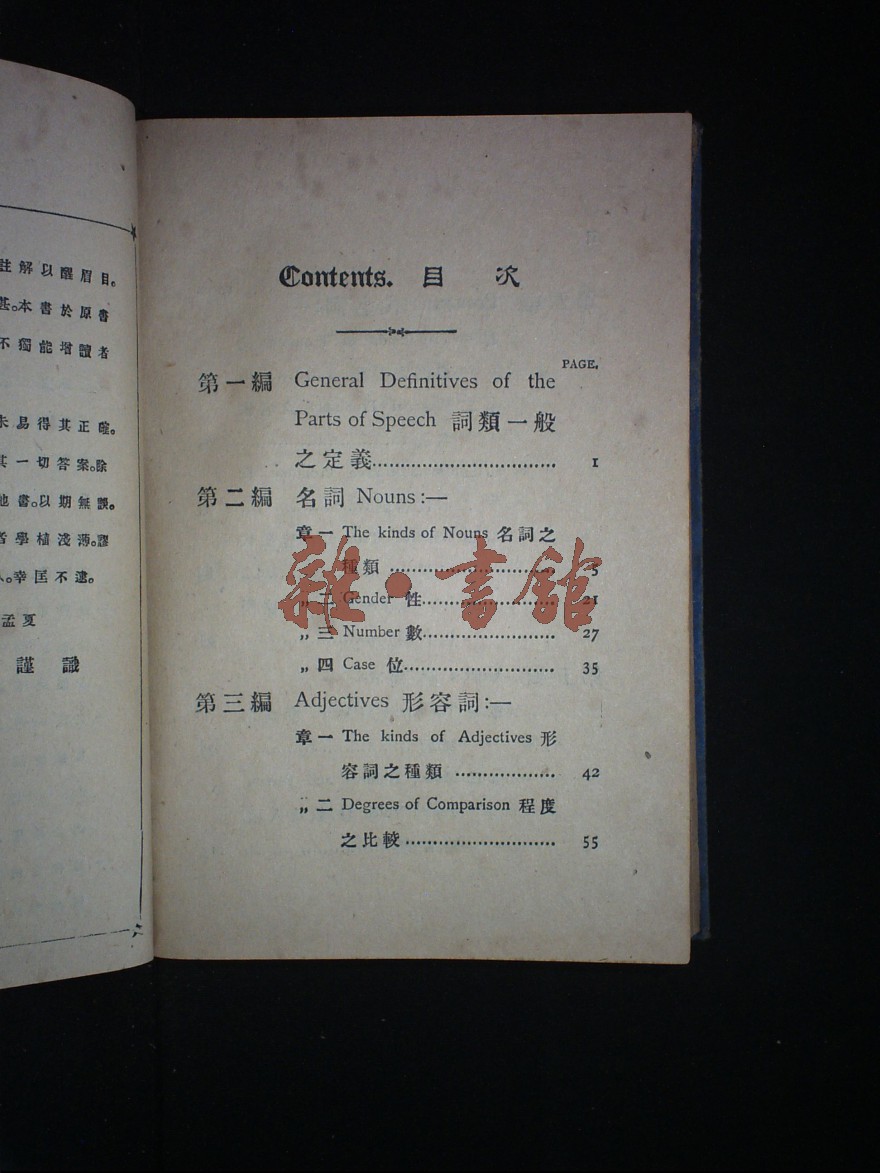 註解以醒眉目。
甚。本書於原書
不獨能增讀者
未易得其正確。
其一切答案。除
他書。以期無誤。
者學植淺薄。謬
人。幸匡不逮。
孟夏
謹識
Contents. 目次
PAGE.
第一編 General Definitives of the
Parts of Speech 詞類一般
之定義................................. 1
第二編 名詞 Nouns:—
章一 The kinds of Nouns 名詞之
種類 .............................. 5
„ 二 Gender 性........................ 21
„ 三 Number 數........................ 27
„ 四 Case 位........................... 35
第三編 Adjectives 形容詞:—
章一 The kinds of Adjectives 形
容詞之種類 .................. 42
„ 二 Degrees of Comparison 程度
之比較........................... 55
雜·書館